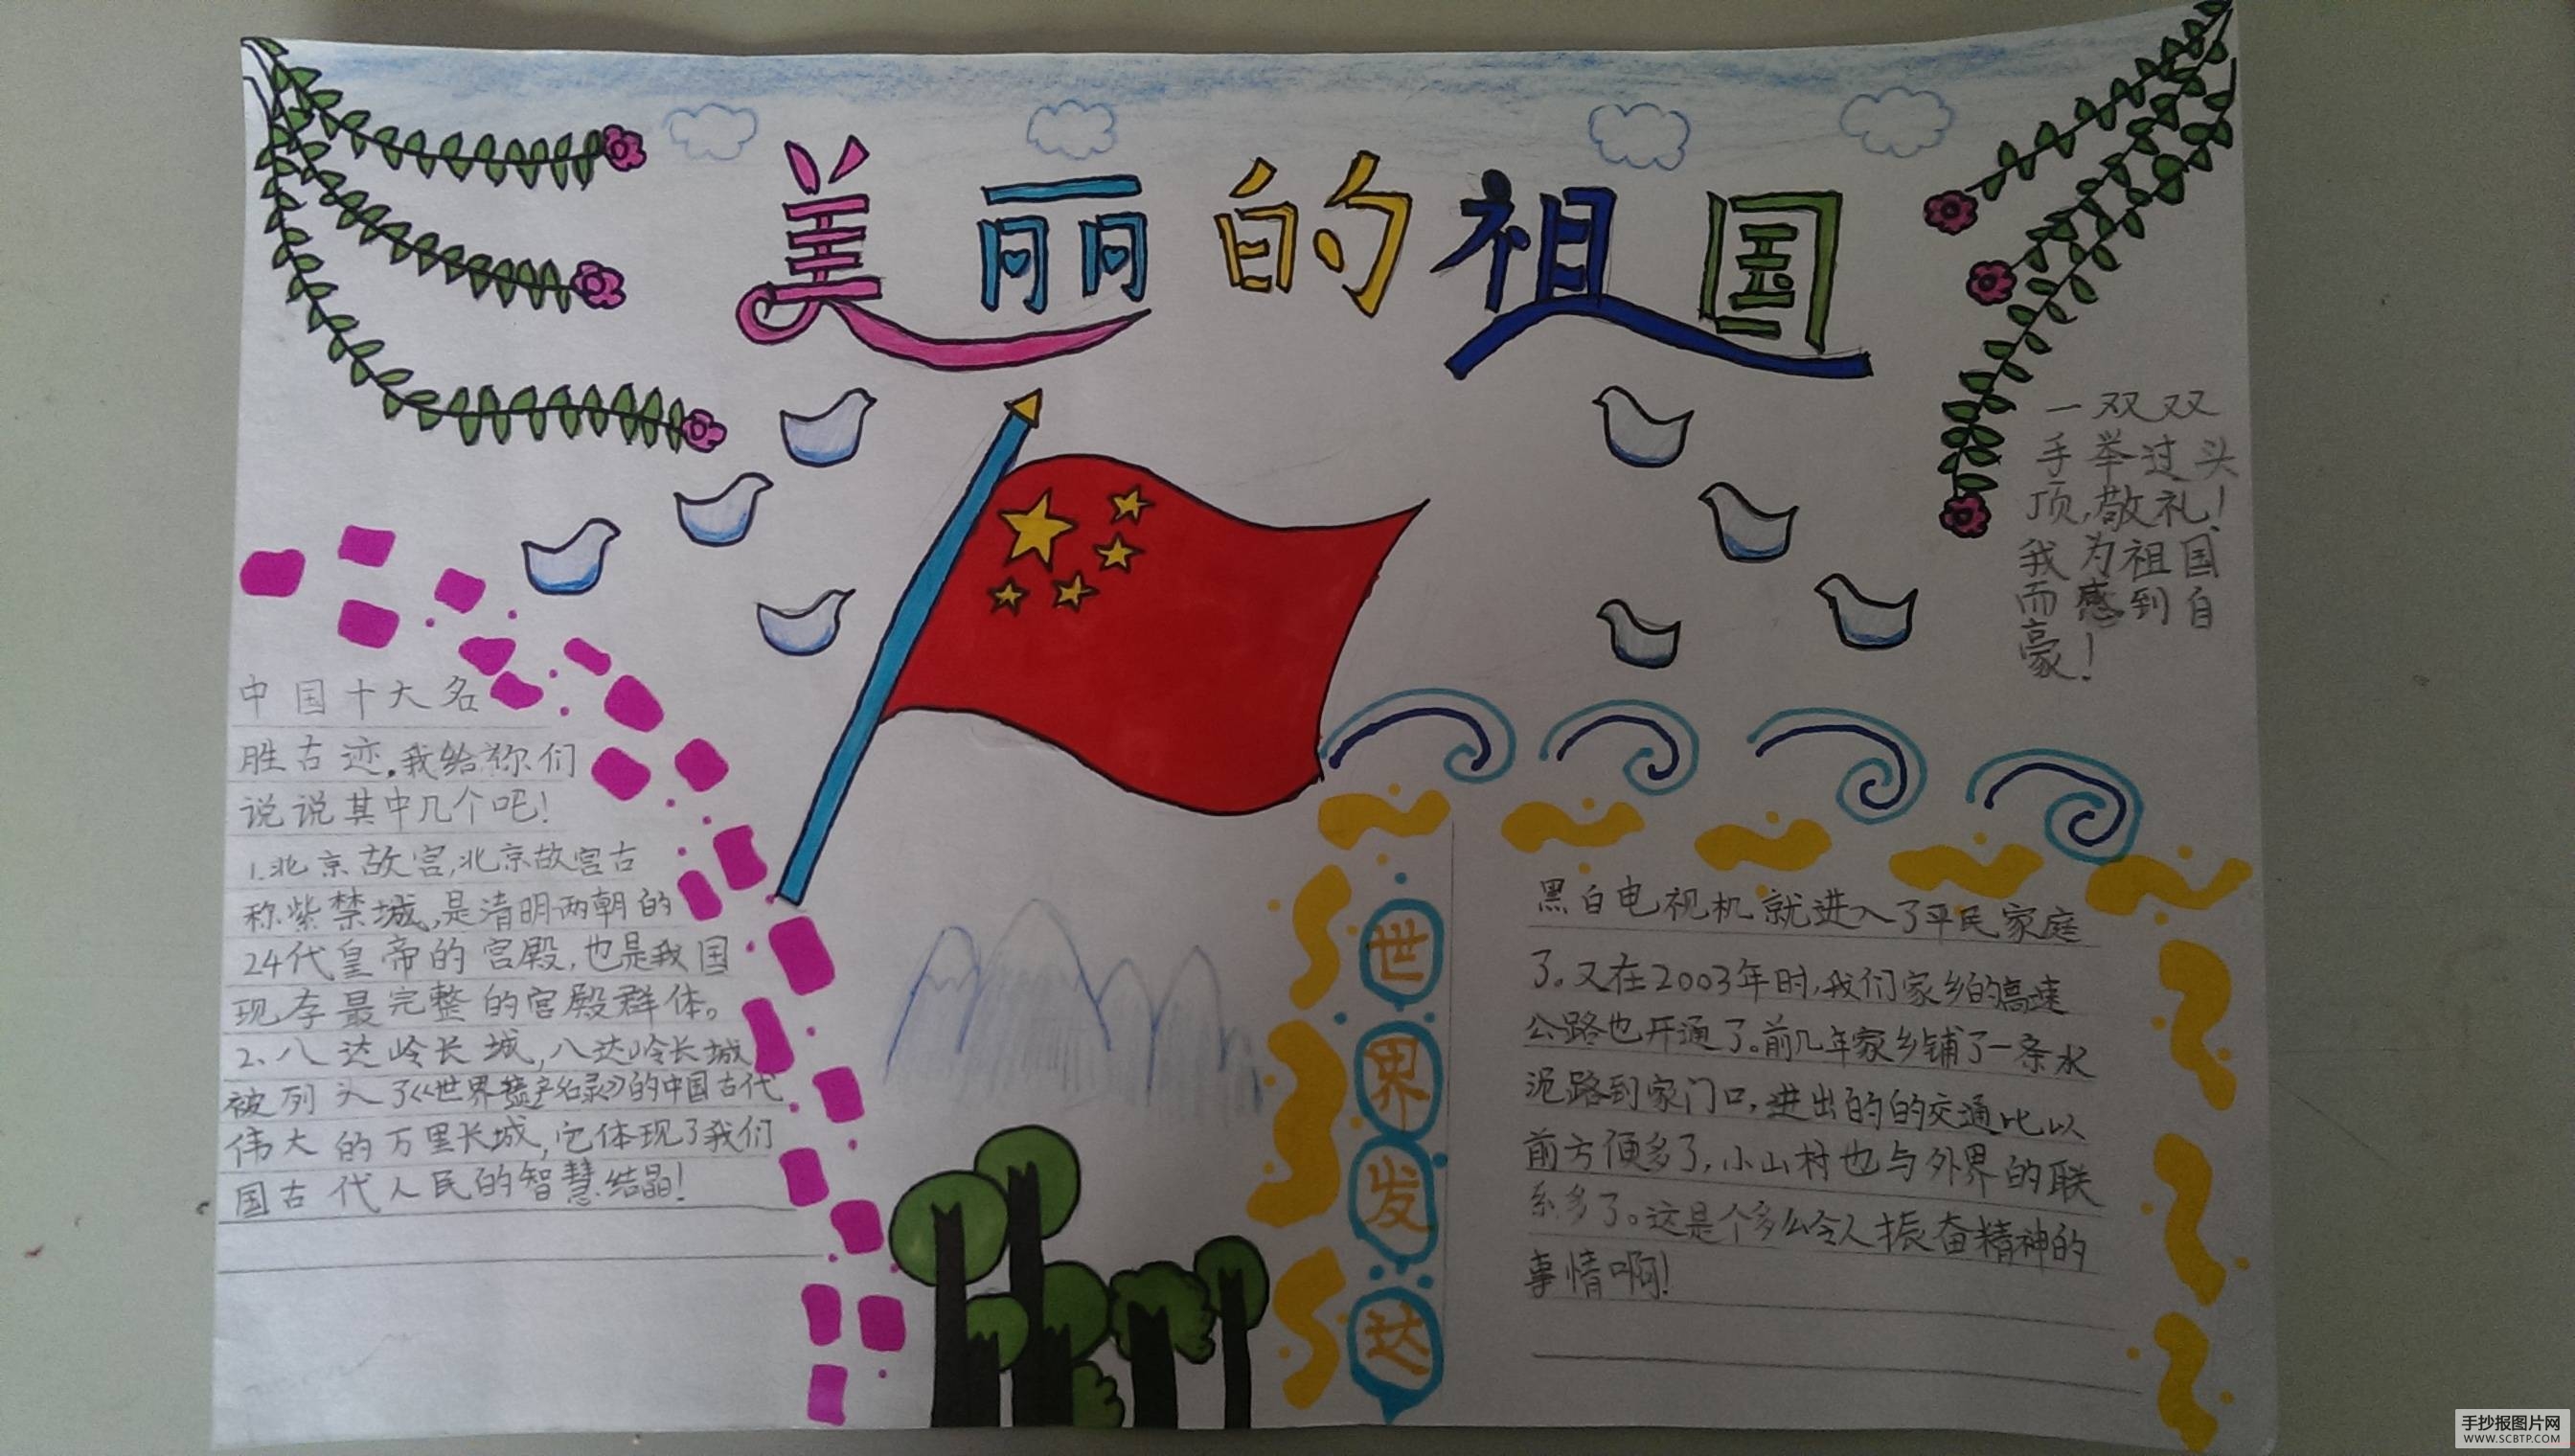 美丽的祖国
一双双
手举过头
顶,敬礼!
我为祖国
而感到自
豪!
中国十大名
胜古迹.我给你们
说说其中几个吧!
1.北京故宫,北京故宫古
称紫禁城,是清明两朝的
24代皇帝的宫殿,也是我国
现存最完整的宫殿群体。
2、八达岭长城,八达岭长城
被列入了《世界遗产名录》的中国古代
伟大的万里长城,它体现了我们
国古代人民的智慧结晶!
世界发达
黑白电视机就进入了平民家庭
了。又在2003年时,我们家乡的高速
公路也开通了。前几年家乡铺了一条水
泥路到家门口,进出的的交通比以
前方便多了,小山村也与外界的联
系多了。这是个多么令人振奋精神的
事情啊!
手抄报图片网
WWW.SCBTP.COM